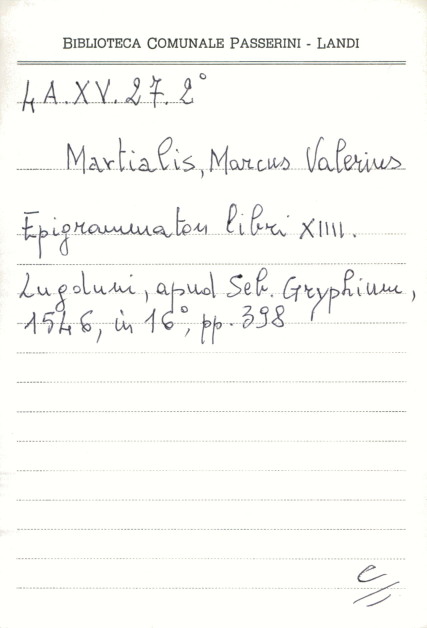 BIBLIOTECA COMUNALE PASSERINI - LANDI
4A.XV.27.2°
Martialis, Marcus Valerius
Epigrammaton libri XIIII.
Lugduni, apud Seb. Gryphium,
1546, in 16°, pp. 398
e